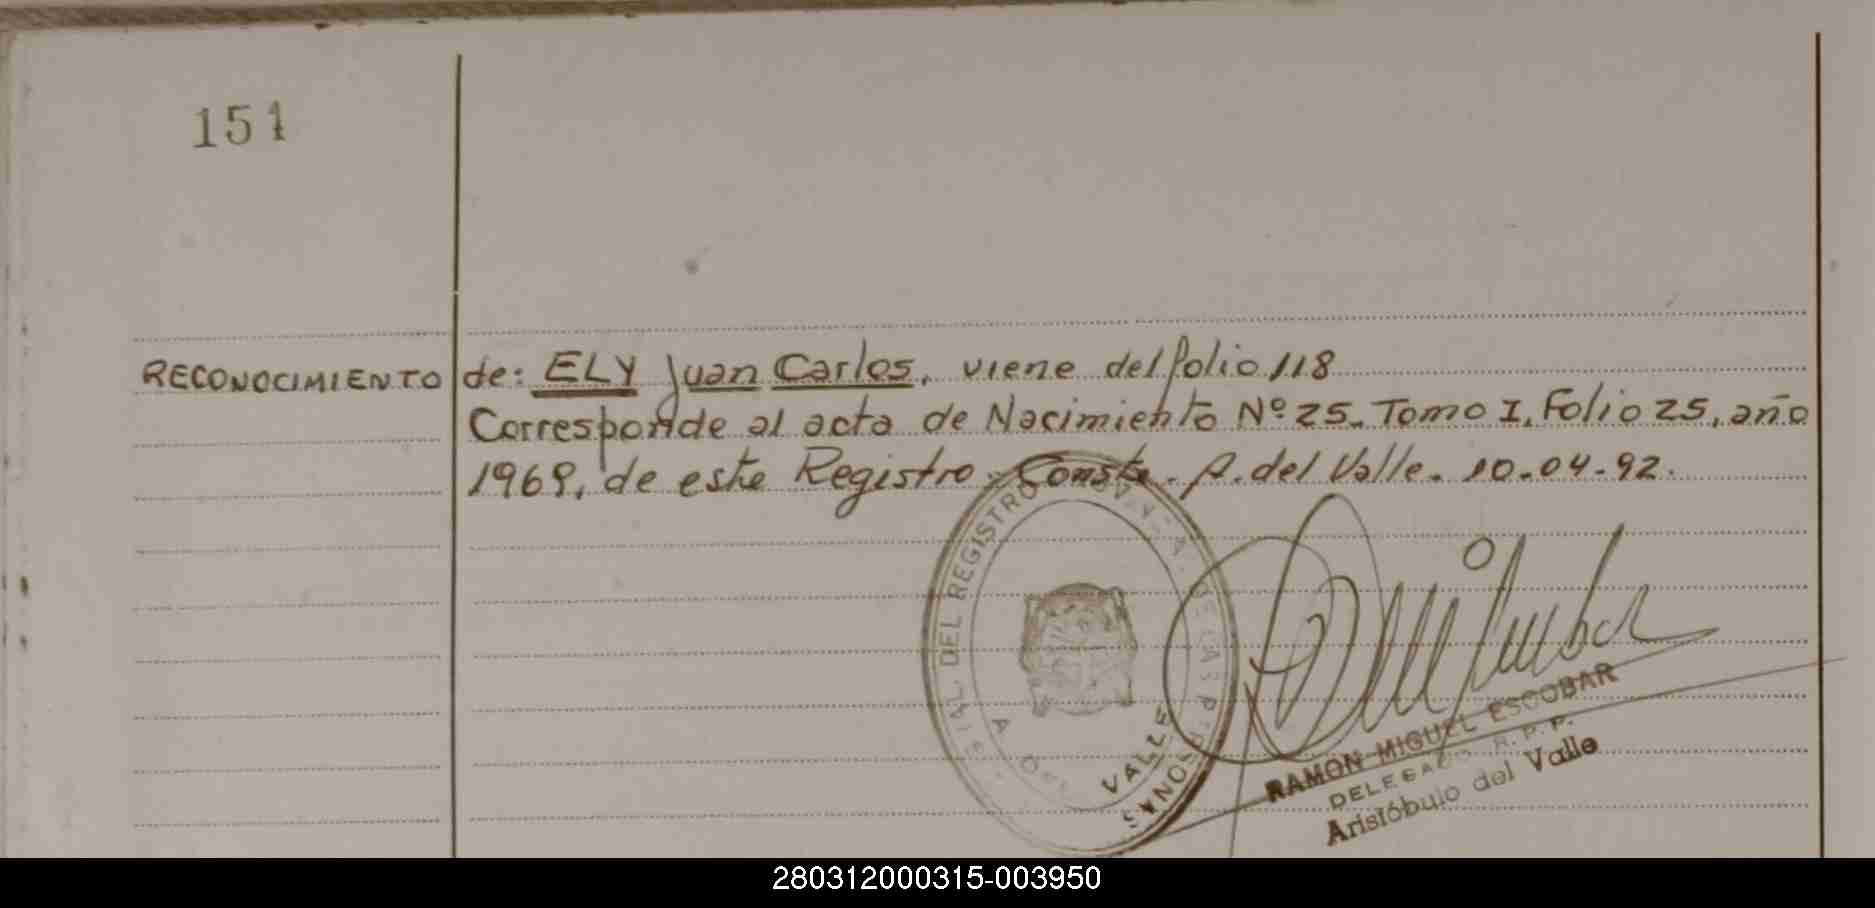 151
RECONOCIMIENTO de: ELY Juan Carlos, viene del folio 118
Corresponde al acta de Nacimiento Nº 25. Tomo I, Folio 25, año
1969, de este Registro. Conste. A. del Valle. 10-04-92.
DEL REGISTRO DE LAS PERSONAS
VALLE
RAMON MIGUEL ESCOBAR
DELEGADO R. P. P.
Aristóbulo del Valle
280312000315-003950